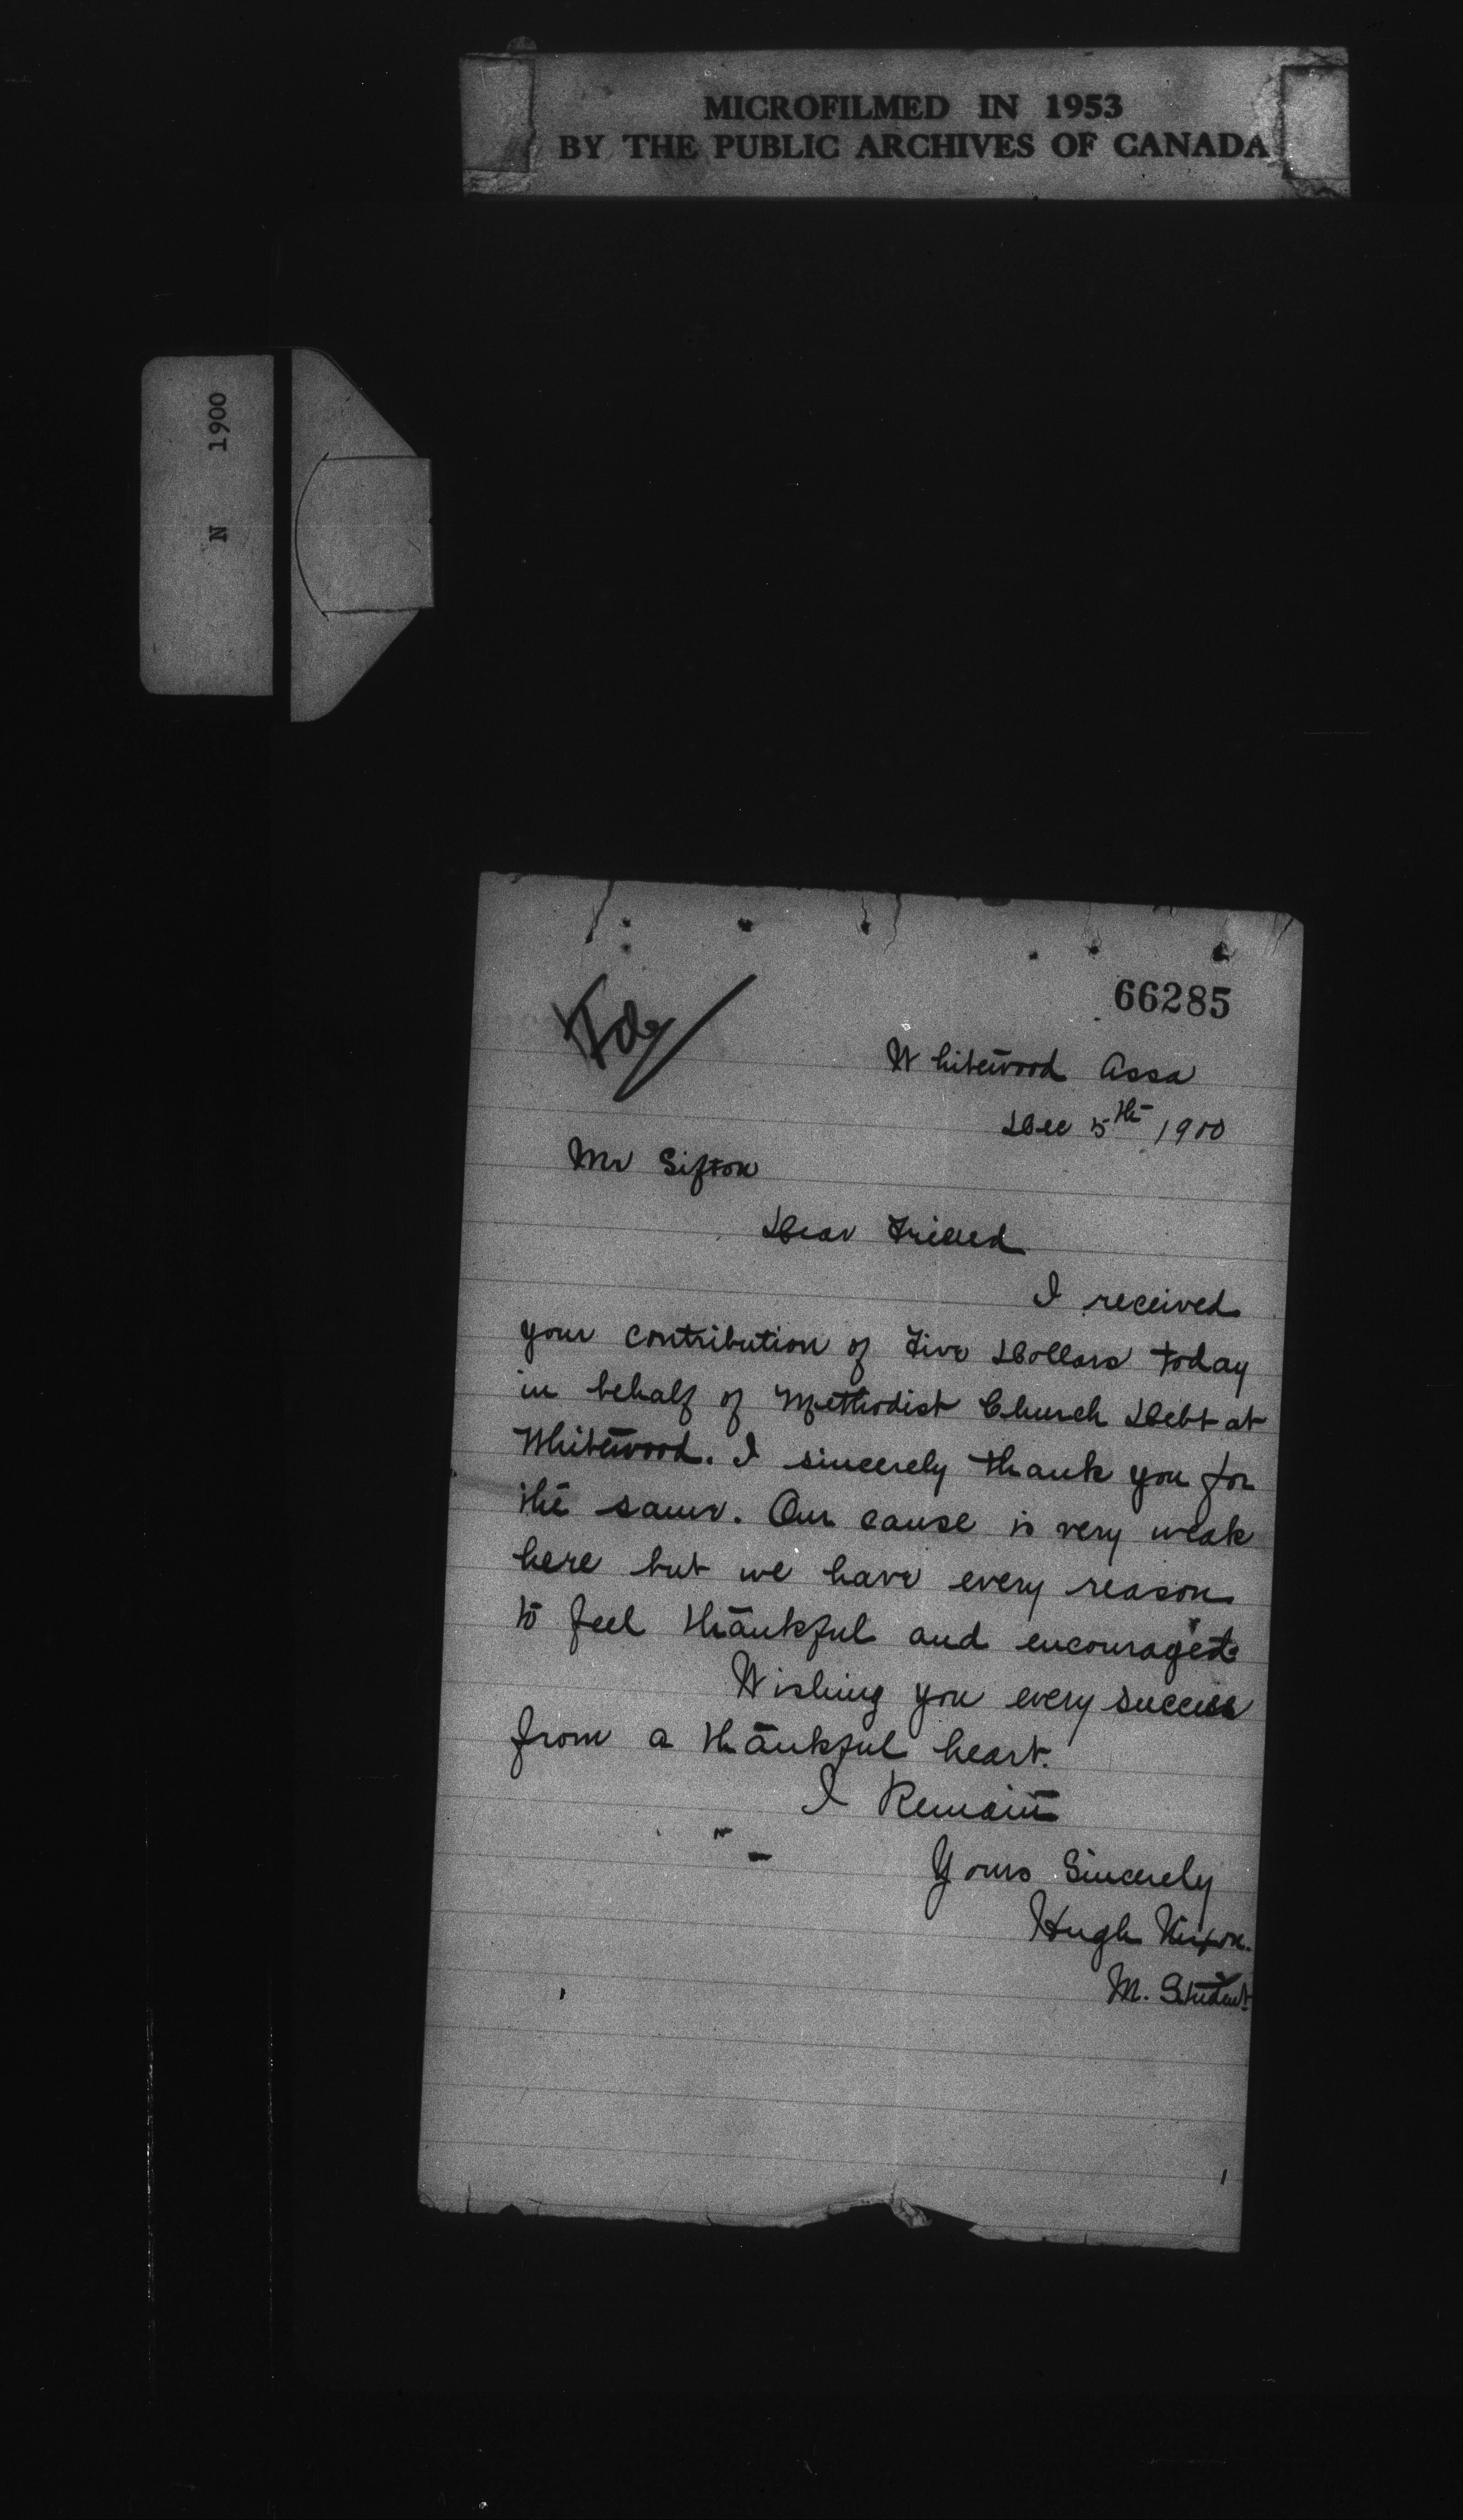 MICROFILMED IN 1953
BY THE PUBLIC ARCHIVES OF CANADA
N 1900
66285
Whitewood Assa
Dec 5th 1900
Mr Sifton
Dear Friend
I received
your contribution of Five Dollars today
in behalf of Methodist Church Debt at
Whitewood. I sincerely thank you for
the same. Our cause is very weak
here but we have every reason
to feel thankful and encouraged.
Wishing you every success
from a thankful heart.
I Remain
Yours Sincerely
Hugh Nixon.
M. Student